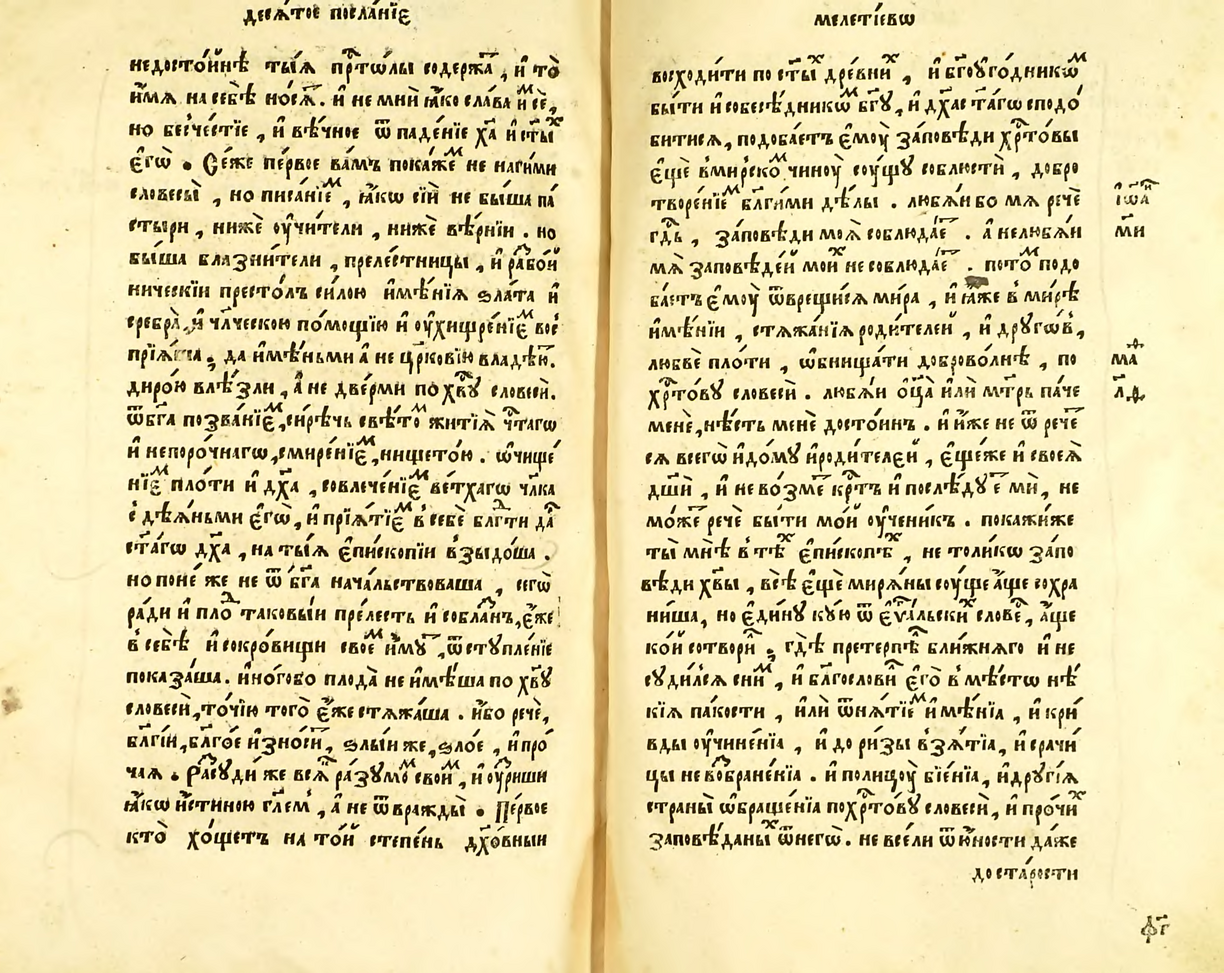 десѧ́тое посла́нїє
недосто́йнѣ ты́ѧ прⷭ҇то́лы содержа́тъ, и҆ то̀
и҆́мѧ на себѣ̀ но́сѧтъ. и҆ не мнѝ ꙗ҆́кѡ сла́ва и҆мъ сѐ,
но бесче́стїе, и҆ вѣ́чное ѿпаде́нїе ха҃ и҆ ст҃ы́хъ
є҆гѡ̀. Се́же пе́рвое ва́мъ покаже́мъ не наги́ми
словесы̀, но писа́нїємъ, ꙗ҆́кѡ сїѝ не бы́ша па́
стыри, нижѐ ѹ҆чи́тели, нижѐ вѣ́рнїи. но
бы́ша блазни́тели, преле́стницы, и҆ разбо́й
ническїи престо́лъ си́лою и҆мѣ́нїѧ ѕла́та и҆
сребра̀, и҆ чл҃ческою по́мощїю и҆ ѹ҆хищре́нїємъ вос
прїѧ́ша, да и҆мѣ́ньми а҆ не цр҃ковїю владѣ́ютъ.
диро́ю влѣ́зли, а҆ не две́рми по хв҃ꙋ словесѝ.
ѿ бг҃а позва́нїємъ, си́рѣчь свѣ́томъ житїѧ̀ чⷭ҇таго
и҆ непоро́чнагѡ, смире́нїємъ, нището́ю. ѡ҆чище́
нїємъ пло́ти и҆ дх҃а, совлече́нїємъ ве́тхагѡ чл҃ка
с̾ дѣѧ́ньми є҆гѡ̀, и҆ прїѧ́тїємъ в̾ себѐ бл҃гти да́ръ
ст҃а́гѡ дх҃а, на ты́ѧ є҆пископїи в̾зыдо́ша.
но поне́же не ѿ бг҃а нача́льствоваша, сегѡ̀
ра́ди и҆ пло́дъ таковы́и пре́лесть и҆ собла́знъ, є҆́же
в̾ себѣ̀ и҆ сокро́вищи свое́мъ и҆мꙋ́тъ, ѿстꙋпле́нїе
показа́ша. и҆но́гобо плода̀ не и҆мѣ́ша по хв҃ꙋ
словесѝ, то́чїю того̀ є҆́же стѧжа́ша. и҆́бо речѐ,
бл҃гі́и, бл҃го́е и҆зно́ситъ, ѕлы́и же, ѕло́е, и҆ про́
чаѧ. Разсꙋди́ же всѧ́къ ра́зꙋмомъ свои́мъ, и҆ ѹ҆́зриши
ꙗ҆́кѡ и҆́стиною гл҃емъ, а҆ не ѿ вражды̀. Пе́рвое
кто̀ хо́щетъ на то́й степе́нь дх҃о́вныи
меле́тїевѡ
восходи́ти по ст҃ы́хъ дре́внихъ, и҆ бг҃оѹго́дникѡмъ
бы́ти и҆ собесѣ́дникѡмъ бг҃ꙋ, и҆ дх҃а ст҃а́гѡ сподо́
битисѧ, подоба́етъ є҆мꙋ̀ за́повѣди хрⷭ҇то́вы
є҆щѐ в̾мирско́мъ чинꙋ̀ сꙋ́щꙋ соблюстѝ, добро
творе́нїємъ бл҃ги́ми дѣ́лы. любѧ́и бо мѧ̀ речѐ
гд҇ь, за́повѣди моѧ̀ соблюда́етъ. а҆ нелюбѧ́и
мѧ̀ за́повѣдей мои́хъ не соблюда́етъ. пото́мъ подо
ба́етъ є҆мꙋ̀ ѿврещи́сѧ ми́ра, и҆ ꙗ҆́же в̾ ми́рѣ
и҆мѣ́нїи, стѧжа́нїѧ роди́телей, и҆ дрꙋго́въ,
любвѐ пло́ти, ѡ҆бнища́ти доброво́лнѣ, по
хрⷭ҇то́вꙋ словесѝ. любѧ́и ѻ҆ц҃а̀ и҆лѝ мт҃рь па́че
менѐ, нѣ́сть менѐ досто́инъ. и҆ и҆́же не ѿрече́т
сѧ всегѡ̀ и҆ до́мꙋ и҆ роди́телей, є҆ще́же и҆ своеѧ̀
дш҃ѝ, и҆ не во́зметъ крⷭ҇тъ и҆ послѣ́дꙋетъ мѝ, не
мо́жетъ речѐ бы́ти мо́й ѹ҆чени́къ. покажи́же
ты̀ мнѣ̀ в̾ тѣ́хъ є҆пи́скопѣхъ, не толи́кѡ за́по
вѣди хв҃ы, всѣ̀ є҆щѐ мирѧ́ны сꙋ́ще а҆́ще сохра
ни́ша, но є҆ди́нꙋ кꙋ́ю ѿ є҆ѵⷢ҇а́льскихъ слове́съ, а҆́ще
ко́й сотвори́лъ, гдѣ̀ претерпѣ́лъ бли́жнѧго и҆ не
сꙋди́лсѧ сни́мъ, и҆ бл҃гослови́лъ є҆го̀ в̾ мѣ́стѡ нѣ́
кїѧ па́кости, и҆лѝ ѿнѧ́тїємъ и҆мѣ́нїа, и҆ кри́
вды ѹ҆чине́нїа, и҆ до ри́зы в̾зѧ́тїа, и҆ срачи́
цы не возбране́нїа. и҆ полицꙋ̀ бїе́нїа, и҆ дрꙋгі́ѧ
страны̀ ѡ҆браще́нїа по хрⷭ҇то́вꙋ словесѝ, и҆ про́чихъ
заповѣ́даныхъ ѿ негѡ̀. не всели ѿ ю҆́ности да́же
до ста́рости
і҆ѡа́н
м҃и
маⷴ҇
л҃д
ф҃г